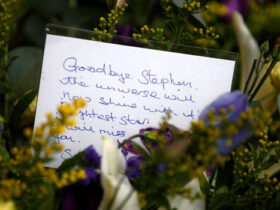 Goodbye Stephen.
the universe will
now shine with it
brightest star.
will miss
you.